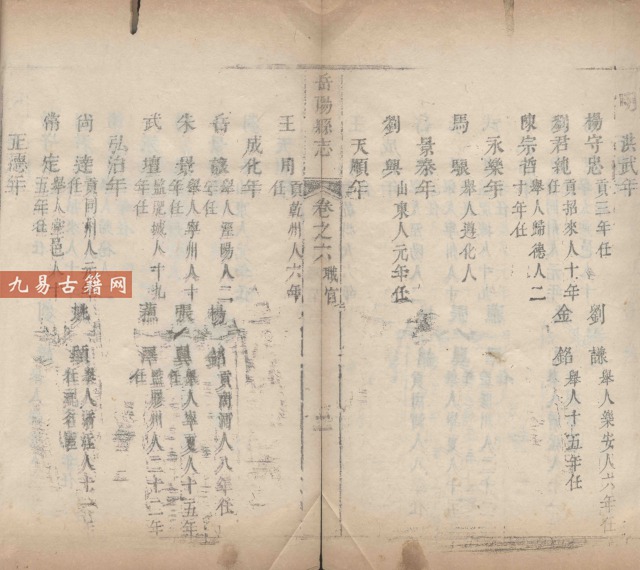 明
洪武年
楊守忠 貢三年任 劉謙 舉人樂安人六年任
劉君總 貢招來人十年 金銘 舉人十五年任
陳宗哲 舉人歸德人二十年任
永樂年
馬驥 舉人遵化人
景泰年
劉興 山東人元年任
天順年
岳陽縣志
卷之六 職官
王用 貢乾州人六年任
成化年
岳 舉人涇陽人二年任 楊 貢南浦人八年任
朱景 舉人寧州人十年任 張翼 舉人寧夏人十五年任
武壇 監城人十九年任 燕澤 監膠州人二十二年任
弘治年
尚達 貢同州人元年任 姚 舉人人十
常定 舉人邑人五年任
正德年
九易古籍网